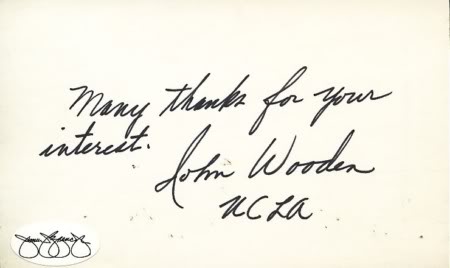 Many thanks for your
interest.
John Wooden
UCLA